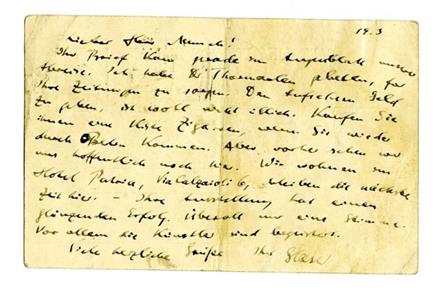 19.3
Lieber Herr Munch!
Ihr Brief kam gerade im Augenblick unserer
Abreise. Ich habe Thormaelen gebeten, für
Ihre Zeitungen zu sorgen. Den Aufsehern Geld
zu geben, ist wohl nicht üblich. Kaufen Sie
ihnen eine Kiste Zigarren, wenn Sie wieder
durch kommen. Aber vorher sehen wir
uns hoffentlich noch hier. Wir wohnen im
Hotel bleiben die nächste
Zeit hier. – Ihre Ausstellung hat einen
glänzenden Erfolg. Überall nur eine Stimme.
Vor allem die Künstler sind begeistert.
Viele herzliche Grüße Ihr Glaser